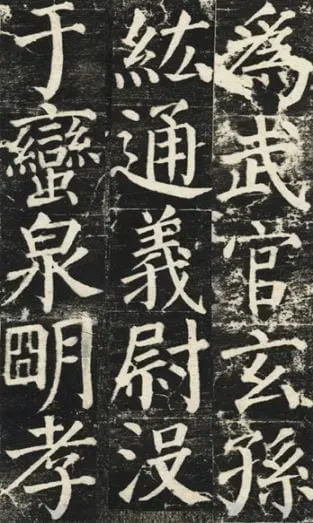 為武官玄孫
紘通義尉沒
于蠻泉朙孝